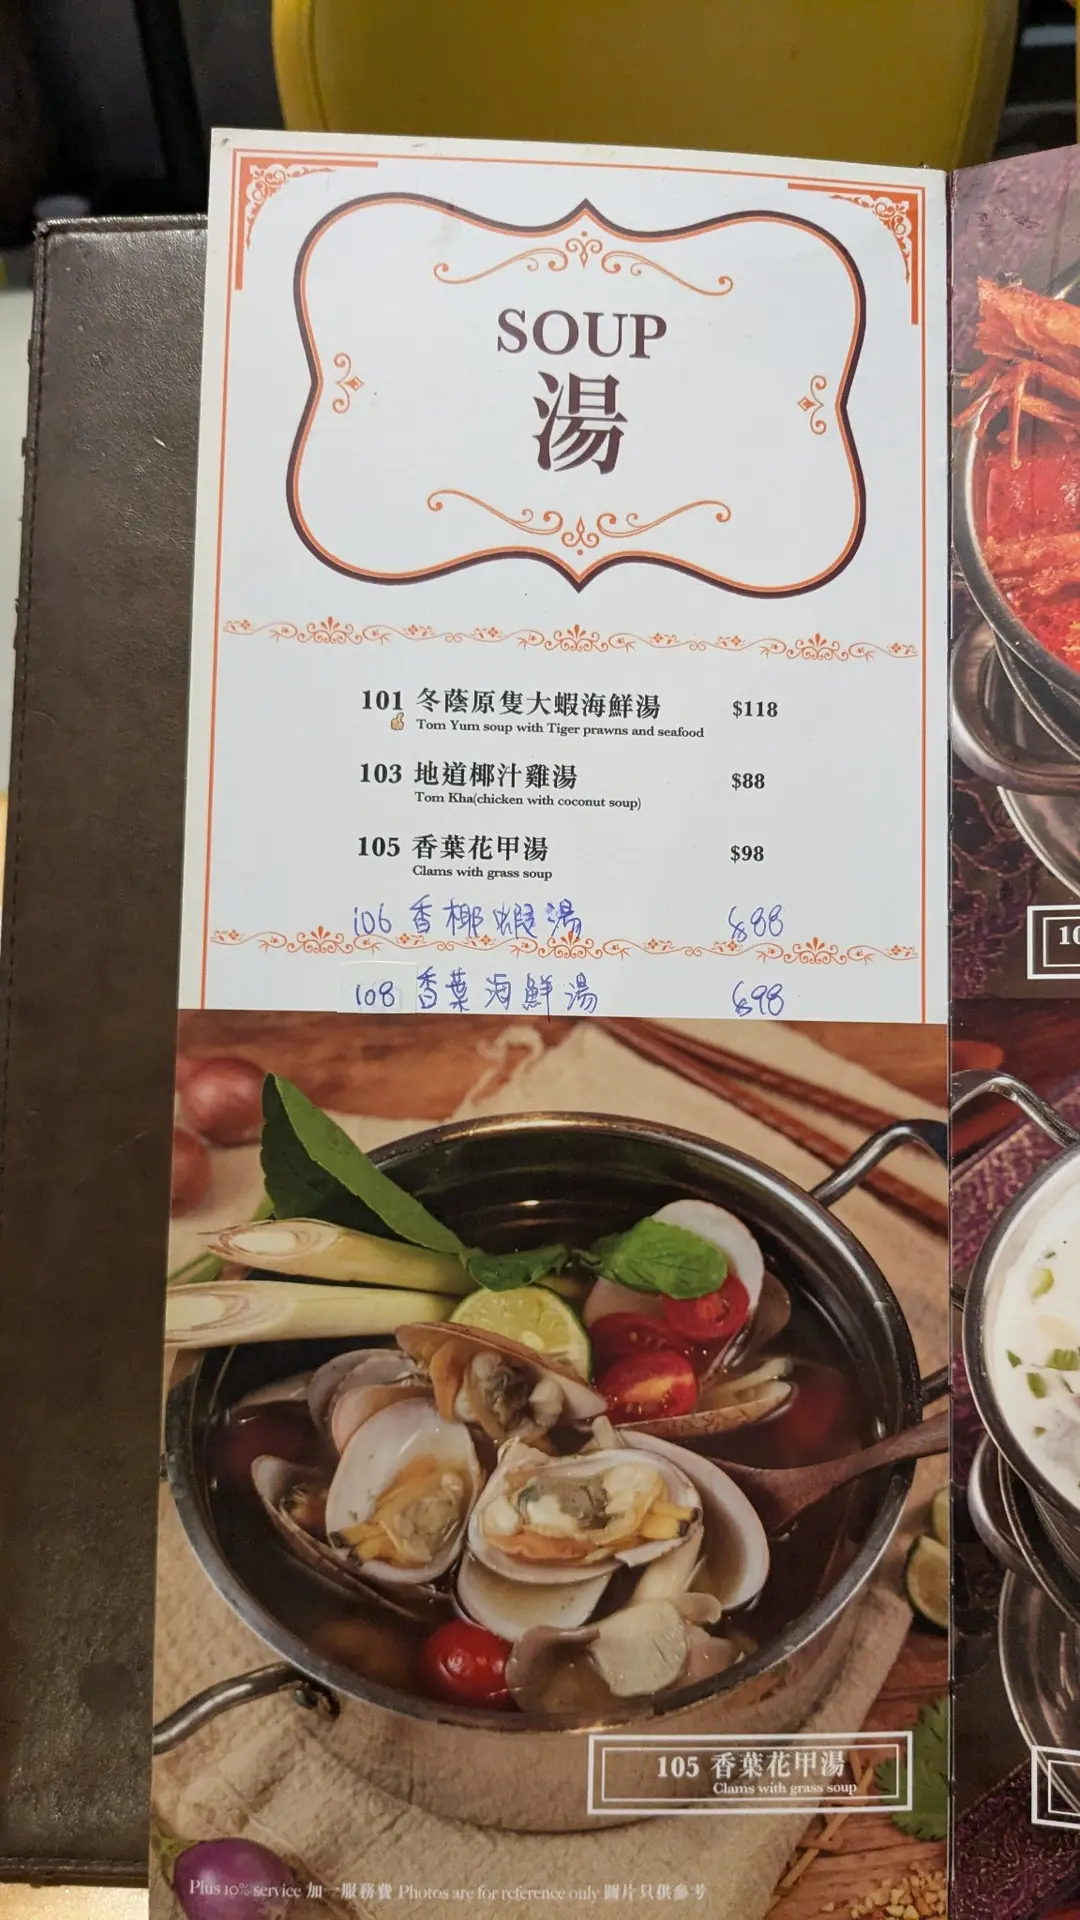 SOUP
湯
101 冬蔭原隻大蝦海鮮湯 $118
Tom Yum soup with Tiger prawns and seafood
103 地道椰汁雞湯 $88
Tom Kha(chicken with coconut soup)
105 香葉花甲湯 $98
Clams with grass soup
106 香椰蝦湯 $88
108 香葉海鮮湯 $98
105 香葉花甲湯
Clams with grass soup
Plus 10% service 加一服務費 Photos are for reference only 圖片只供參考
10